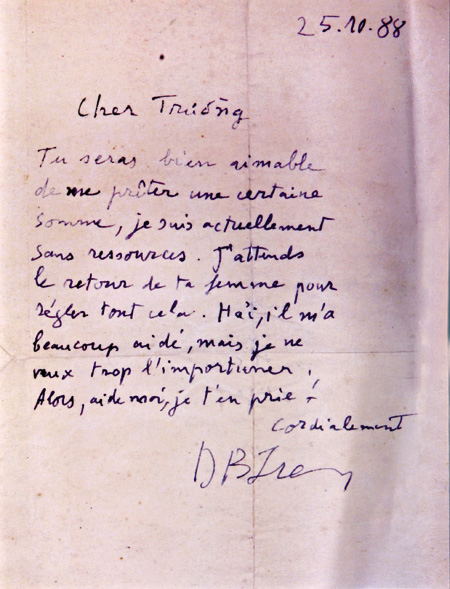 25.10.88
Cher Trường
Tu seras bien aimable
de me prêter une certaine
somme, je suis actuellement
sans ressources. J'attends
le retour de ta femme pour
régler tout cela. Hải, il m'a
beaucoup aidé, mais je ne
veux trop l'importuner.
Alors, aide moi, je t'en prie !
Cordialement